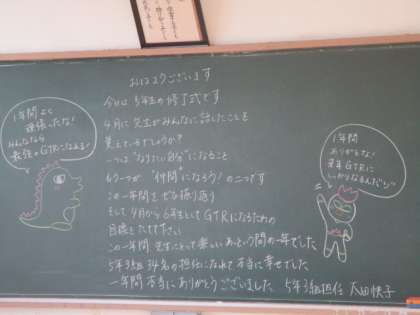 おはようございます
今日は5年生の修了式です
4月に先生がみんなに話したことを
覚えているでしょうか?
一つは"なりたい自分"になること
もう一つが"仲間"になろう!の二つです
この一年間をぜひ振り返り
そして4月から6年生としてGTRになるための
目標をたてて下さい
この一年間 先生にとって楽しいあっという間の一年でした
5年3組34名の担任になれて本当に幸せでした
一年間本当にありがとうございました 5年3組担任 太田
1年間よく
頑張ったな!
みんななら
最強のGTRになれる!
1年間
ありがとな!
来年GTRに
しっかりなるんだゾ